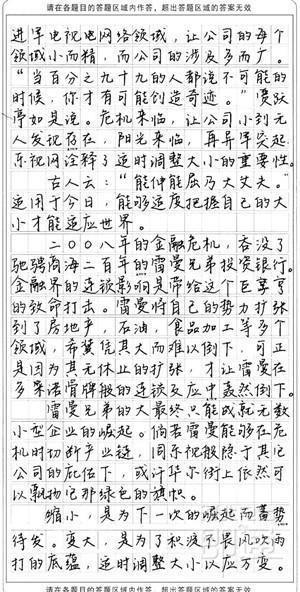 请在各题目的答题区域内作答，超出答题区域的答案无效
进军电视电网络领域，让公司的每个
领域小而精，而公司的涉及多而广。
"当百分之九十九的人都说不可能的
时候，你才有可能创造奇迹。"贾跃
亭如是说。危机来临，让公司小到无
人发现存在，阳光来临，再异军突起
乐视网诠释了适时调整大小的重要性。
古人云："能伸能屈乃大丈夫。"
适用于今日，能够适度把握自己的大
小才能适应世界。
二〇〇八年的金融危机，吞没了
驰骋商海二百年的雷曼兄弟投资银行。
金融界的连锁影响是带给这个巨擘
的致命打击。雷曼将自己的势力扩张
到了房地产，石油，食品加工等多个
领域，希冀凭其大而难以倒下，可正
是因为其无休止的扩张，才让雷曼在
多米诺骨牌般的连锁反应中轰然倒下。
雷曼兄弟的大最终只能成就无数
小型企业的崛起。倘若雷曼能够在危
机时切断产业链，同乐视般隐于其它
公司的庇佑下，或许华尔街上依然可
以飘扬它那绿色的旗帜。
缩小，是为下一次的崛起而蓄势
待发。变大，是为了积淀下暴风吹雨
打的底蕴，适时调整大小以应万变。
请在各题目的答题区域内作答，超出答题区域的答案无效